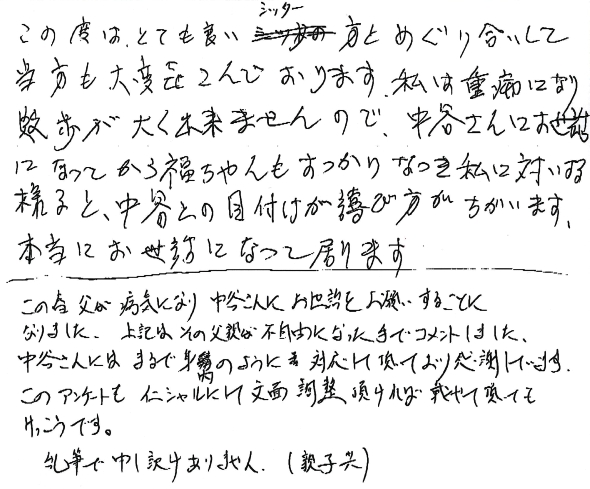 シッター
この度は、とても良い 方とめぐり合いして
当方も大変喜こんでおります。私は重病になり
散歩が大く出来ませんので、中谷さんにお世話
になってから福ちゃんもすっかりなつき私に対いする
様ると、中谷との目付けが 喜び方がちがいます、
本当にお世話になって居ります
この度父が病気になり中谷さんにお世話をお願いすることに
なりました。上記はその父親が不自由になった手でコメントしました、
中谷さんにはまるで身内のように 対応して頂いており感謝しています.
このアンケートもイニシャルにして文面調整頂ければ載せて頂いても
けっこうです。
乱筆で申し訳ありません.(親子共)